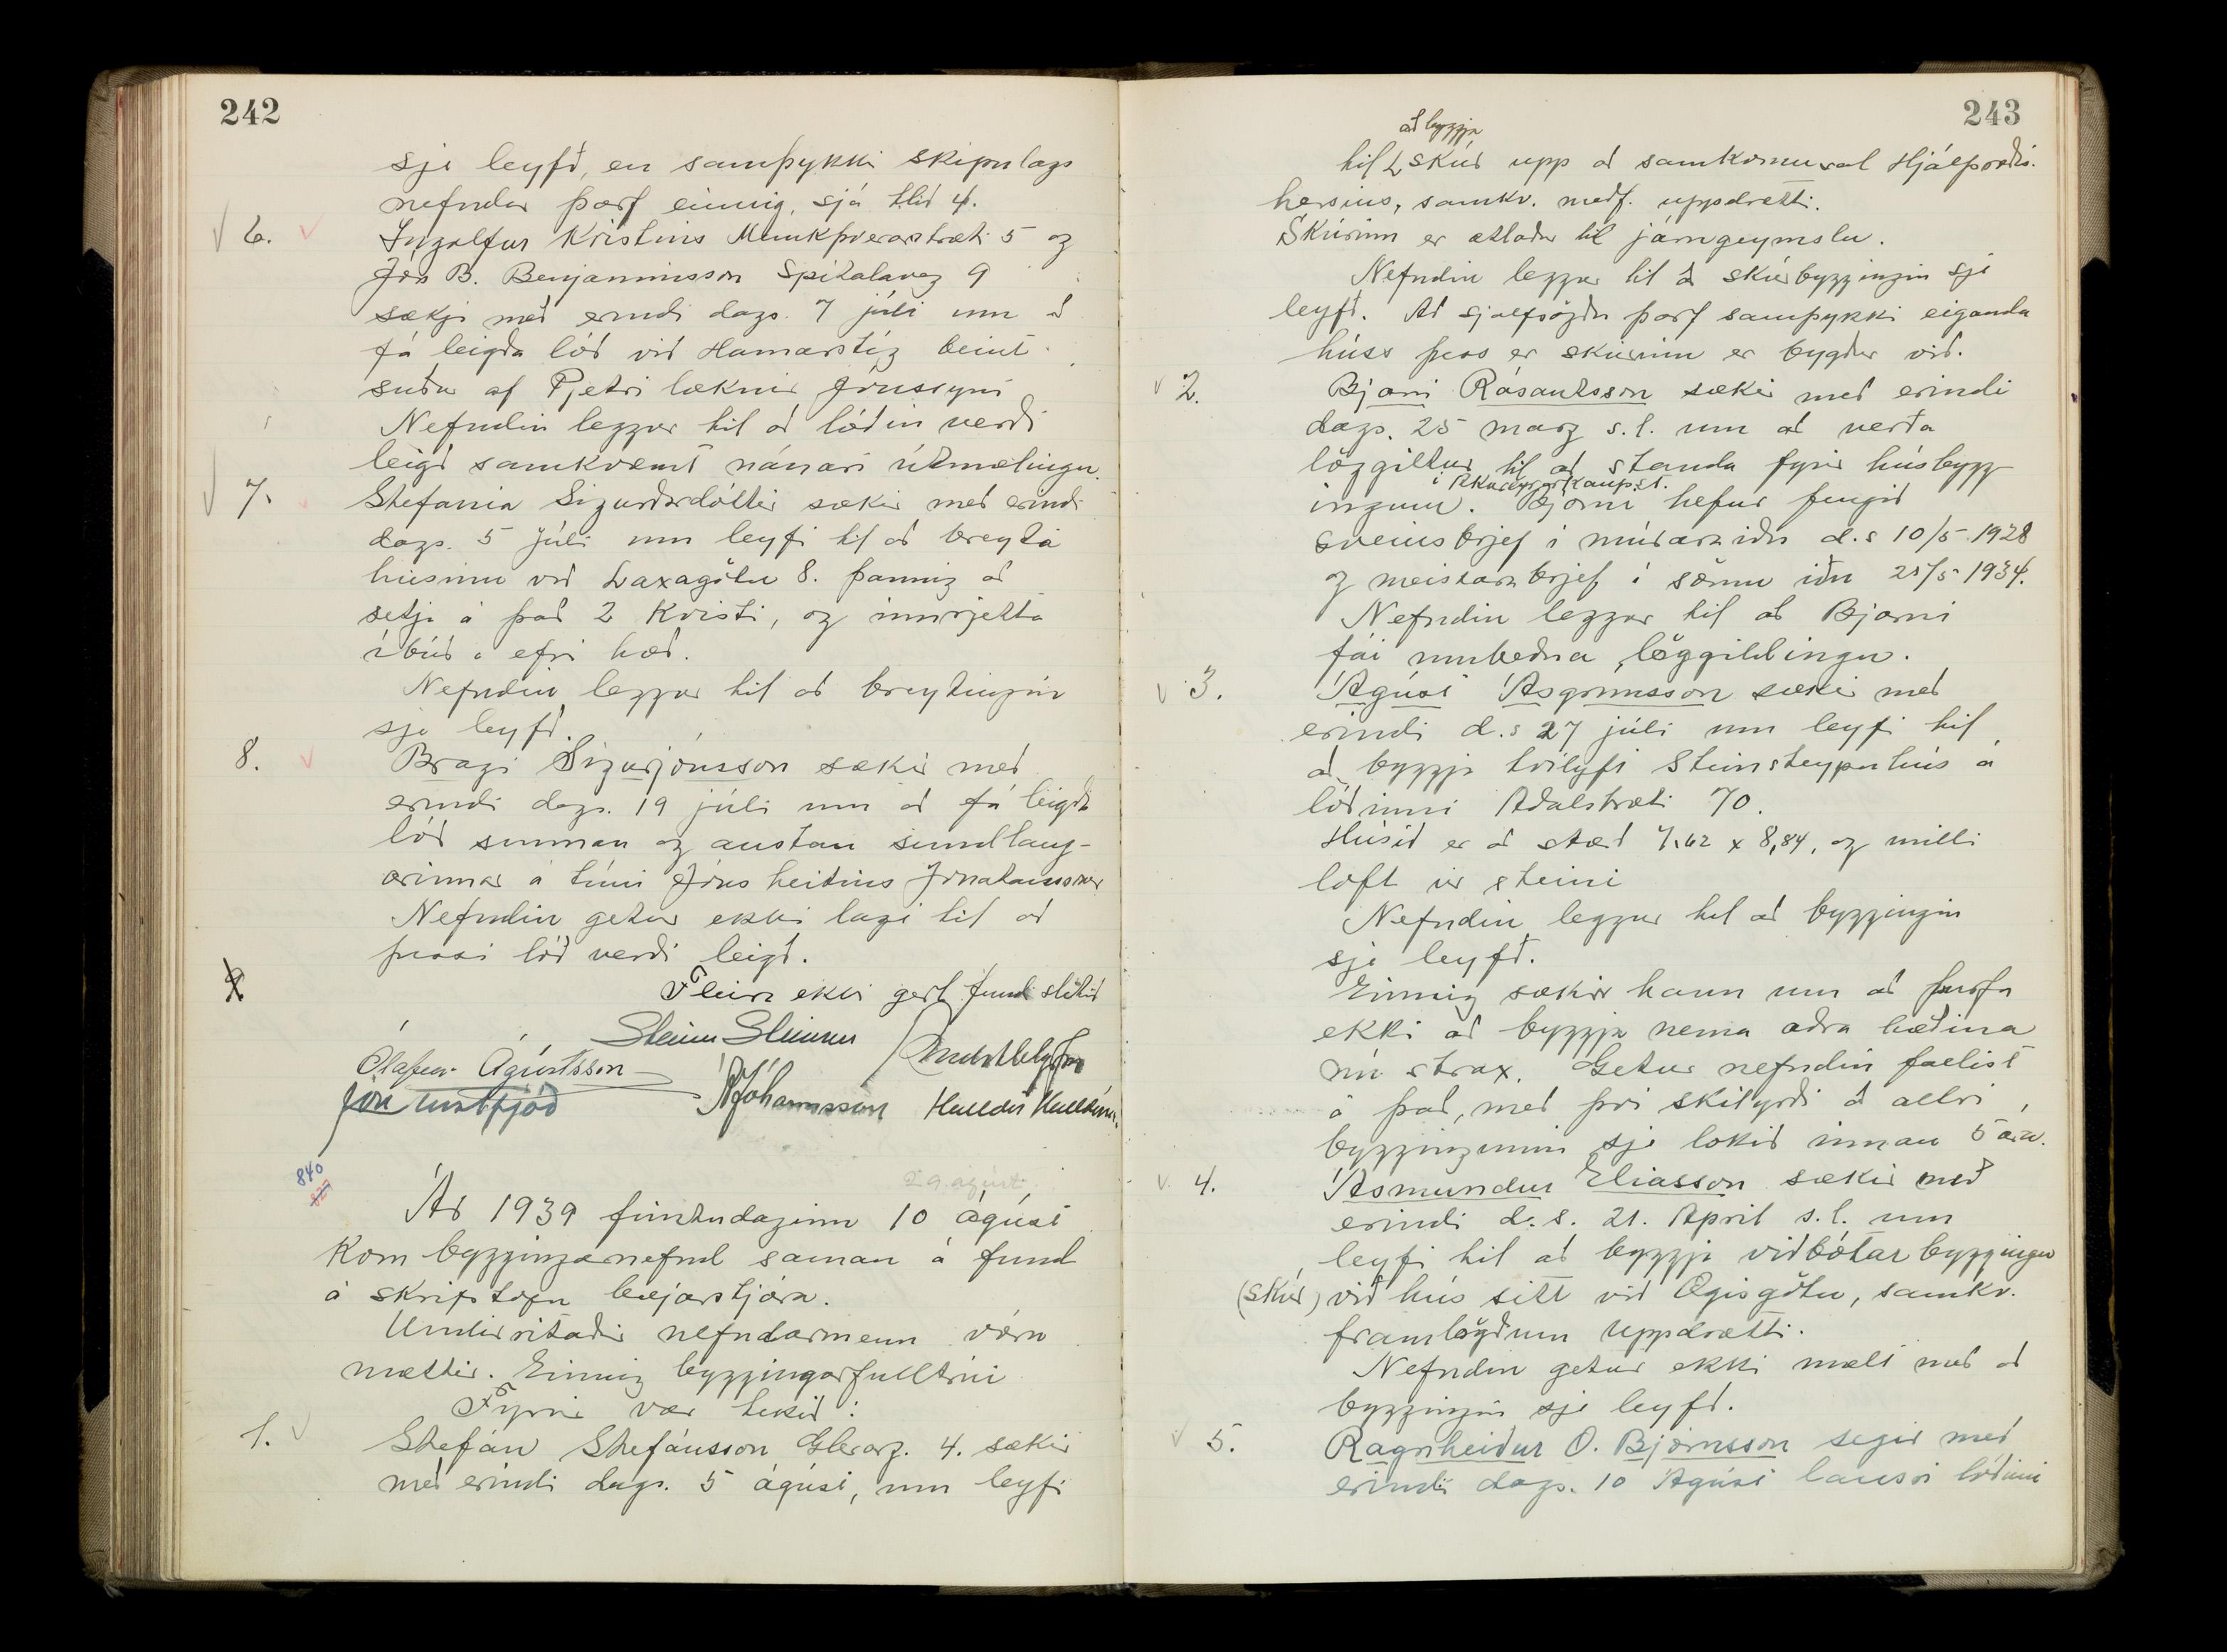 242
sje leyfð, en samþykki skipulags
nefndar þarf einnig, sjá lið 4.
6. Ingolfur Kristins Munkþverarstræti 5 og
Jón B. Benjamínsson Spítalaveg 9
sækja með erindi dags. 7 júli um að
fá leigða lóð við Hamarstíg beint
suður af Pjetri læknir Jónssyni
Nefndin leggur til að lóðin verði
leigð samkvæmt nánari útmælingu.
7. Stefania Sigurðardóttir sækir með erindi
dags. 5 júli um leyfi til að breyta
húsinu við Laxagötu 8. þannig að
setja á það 2 kvisti, og innrjetta
íbúð á efri hæð.
Nefndin leggur til að breytingin
sje leyfð.
8. Bragi Sigurjónsson sækir með
erindi dags. 19 júli um að fá leigða
lóð sunnan og austan sundlaug-
arinnar á túni Jóns heitins Jónatanssonar
Nefndin getur ekki lagt til að
þessi lóð verði leigð.
9
Fleira ekki gert fundi slitið
Steinn Steinsen
Ólafur Ágústsson
Jón Austfjöð
A Jóhannsson Halldór Halldórs.
840
29 ágúst
Ár 1939 fimtudaginn 10 ágúst
kom bygginganefnd saman á fund
á skrifstofu bæjarstjóra.
Undirritaðir nefndarmenn voru
mættir. Einnig byggingarfulltrúi
Fyrir var tekið:
1. Stefán Stefánsson Glerárg. 4. sækir
með erindi dags. 5 ágúst, um leyfi
243
að byggja
til skúr upp að samkomusal Hjálpræðis-
hersins, samkv. meðf. uppdrætti.
Skúrinn er ætlaður til járngeymslu.
Nefndin leggur til að skúrbyggingin sje
leyfð. Að sjalfsögðu þarf samþykki eiganda
húss þess er skúrinn er bygður við.
2. Bjarni Rósantsson sækir með erindi
dags. 25 marz s.l. um að verða
löggiltur til að standa fyrir húsbygg
í Akureyrarkaupst.
ingum. Bjarni hefur fengið
sveinsbrjef í múraraiðn d.s 10/5 1928
og meistarabrjef í sömu iðn 25/5 1934.
Nefndin leggur til að Bjarni
fái umbeðna löggildingu.
3. Ágúst Ásgrímsson sækir með
erindi d.s 27 júli um leyfi til
að byggja tvílyft steinsteypuhús á
lóðinni Aðalstræti 70.
Húsið er að stærð 7,62 x 8,84, og milli
loft úr steini
Nefndin leggur til að byggingin
sje leyfð.
Einnig sækir hann um að þurfa
ekki að byggja nema aðra hæðina
nú strax. Getur nefndin fallist
á það, með því skilyrði að allri
byggingunni sje lokið innan 5 ára.
4. Ásmundur Elíasson sækir með
erindi d.s. 21. Apríl s.l. um
leyfi til að byggja viðbótar byggingu
(skúr) við hús sitt við Ægisgötu, samkv.
framlögðum uppdrætti.
Nefndin getur ekki mælt með að
byggingin sje leyfð.
5. Ragnheiður O. Björnsson segir með
erindi dags. 10 Ágúst lausri lóðinni